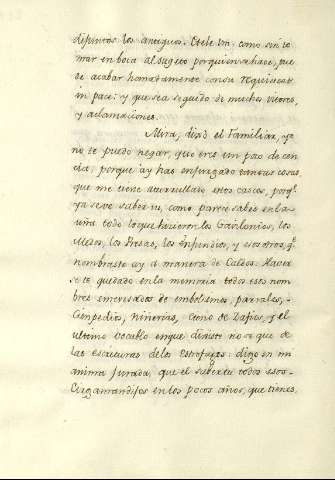 difuntos los antiguos. Este en: como sin to
mar en boca al sugeto por quien se hace, pue
de acabar honrradamente con su requiescat
in pace: y que sea seguido de muchos vitores,
y aclamaciones.
Mira, dixo el Familiar, ya
no te puedo negar, que eres un pozo de cien
cia, porque ay has ensartado tantas cosas,
que me tiene maravillado estos cascos, porq.e
ya se ve saber tu, como parece sabes en la
uña todo lo que hicieron los Gavilonios, los
Medos, los Presas, los Enpendios, y essotros q.e
nombraste ay a manera de Caldos. Haver
se te quedado en la memoria todos esos nom
bres enrevesados de embolismos, parrales,
Cienpedios, Niñerias, Cieno de Zafios, y el
ultimo vocablo en que diviste no se que de
las escrituras de la Estrofajos: digo en mi
anima Jurada, que el saber tu todos esos
Cirganrandifos en los pocos años, que tienes,